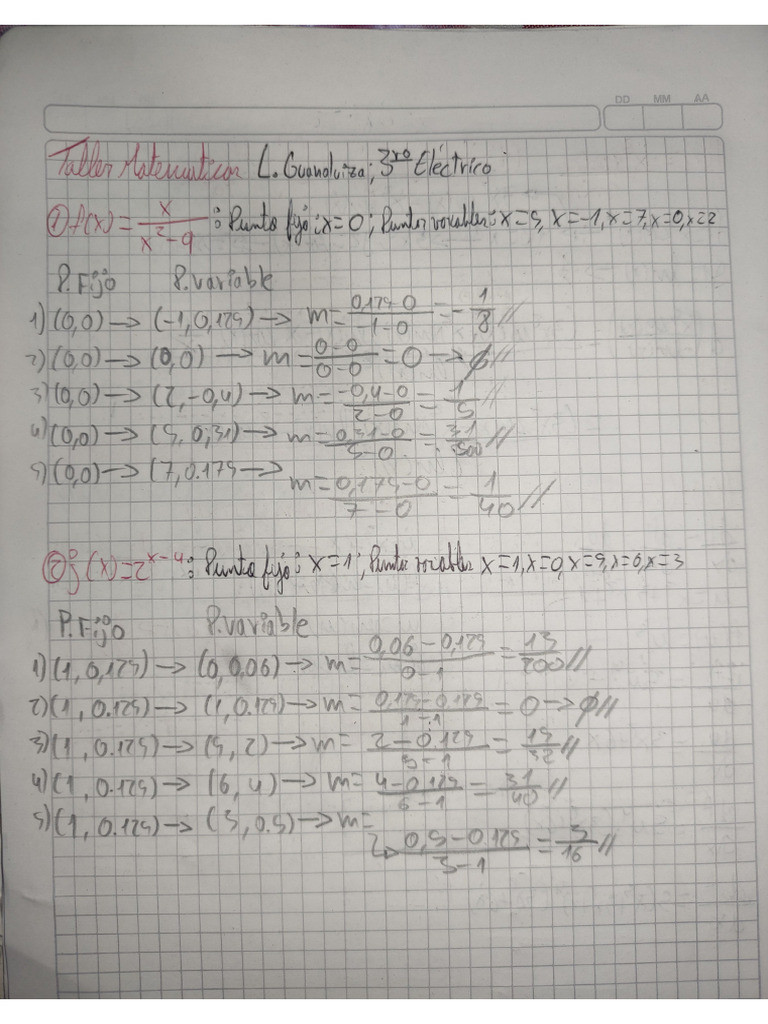 DD MM AA
Taller Matematicas L. Guanoluiza; 3ro Eléctrico
① f(x) = x/(x²-9) : Punto fijo: x=0; Puntos variables: x=5, x=-1, x=7, x=0, x=2
P.Fijo P.variable
1) (0,0) → (-1, 0,125) → m = (0,125-0)/(-1-0) = -1/8 //
2) (0,0) → (0,0) → m = (0-0)/(0-0) = 0 → ∅ //
3) (0,0) → (2,-0,4) → m = (-0,4-0)/(2-0) = 1/5 //
4) (0,0) → (5, 0,31) → m = (0,31-0)/(5-0) = 31/500 //
5) (0,0) → (7, 0.175 → m = (0,175-0)/(7-0) = 1/40 //
② f(x) = 2^(x-4) : Punto fijo: x=1; Puntos variables x=1, x=0, x=5, x=6, x=3
P.Fijo P.variable
1) (1, 0,125) → (0, 0,06) → m = (0,06-0,125)/(0-1) = 13/200 //
2) (1, 0.125) → (1, 0.125) → m = (0,125-0,125)/(1-1) = 0 → ∅ //
3) (1, 0.125) → (5, 2) → m = (2-0.125)/(5-1) = 15/32 //
4) (1, 0.125) → (6, 4) → m = (4-0.125)/(6-1) = 31/40 //
5) (1, 0.125) → (3, 0.5) → m =
↳ (0,5-0.125)/(3-1) = 3/16 //